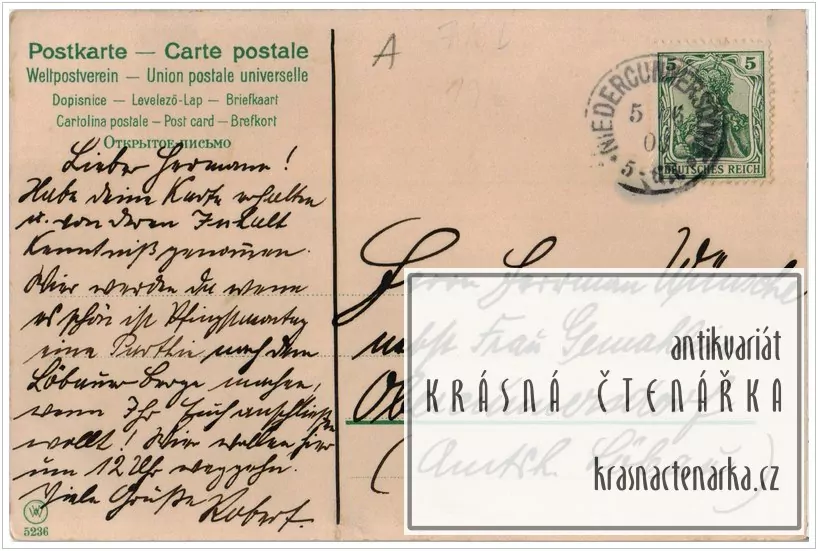 Postkarte — Carte postale
Weltpostverein — Union postale universelle
Dopisnice — Levelező-Lap — Briefkaart
Cartolina postale — Post card — Brefkort
Открытое письмо
Lieber Hermann!
Habe deine Karte erhalten
u. von deren Inhalt
Kenntniß genommen.
Wier werden da wenn
es schön ist Pfingstmontag
eine Parthie nach dem
Löbauer Berge machen,
wenn Ihr Euch anschließen
wollt! Wier wollen hier
um 12 Uhr weggehn.
Viele Grüße
Robert.
W
5236
A
5 5
DEUTSCHES REICH
NIEDERCUNNERSDORF
5
Herrn Herrman Wünsche
nebst Frau Gemahlin
(Amtsh. Löbau)
antikvariát
KRÁSNÁ ČTENÁŘKA
krasnactenarka.cz